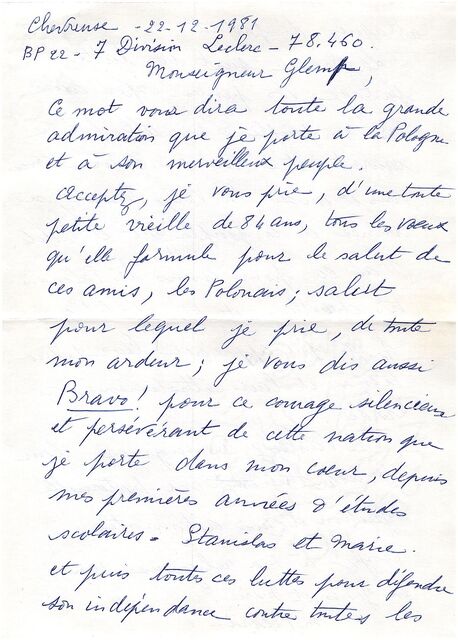 Chevreuse - 22-12-1981
BP 22 - 7 Division Leclerc - 78.460.
Monseigneur Glemp,
Ce mot vous dira toute la grande
admiration que je porte à la Pologne
et à son merveilleux peuple.
Acceptez, je vous prie, d'une toute
petite vieille de 84 ans, tous les vœux
qu'elle formule pour le salut de
ces amis, les Polonais ; salut
pour lequel je prie, de toute
mon ardeur ; je vous dis aussi
Bravo ! pour ce courage silencieux
et persévérant de cette nation que
je porte dans mon cœur, depuis
mes premières années d'études
scolaires. Stanislas et Marie.
et puis toutes ces luttes pour défendre
son indépendance contre toutes les